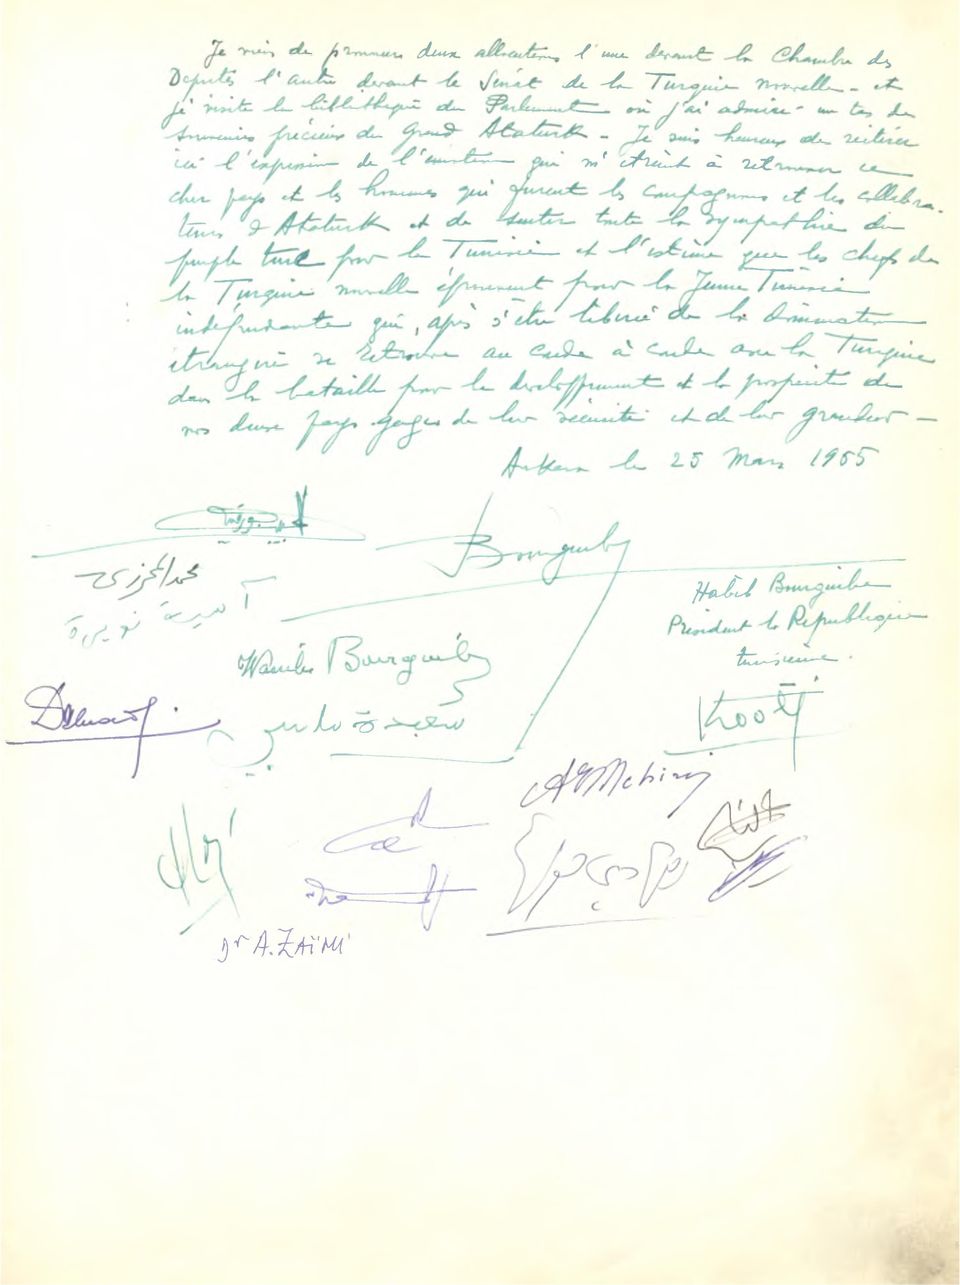 Je viens de prononcer deux allocutions l'une devant la Chambre des
Députés l'autre devant le Sénat de la Turquie nouvelle - et
je visite la bibliothèque du Parlement où j'ai admiré un tas de
souvenirs précieux du Grand Ataturk - Je suis heureux de réitérer
ici l'expression de l'émotion qui m'étreint à retrouver ce
cher pays et les hommes qui furent les compagnons et les collabora-
teurs d'Ataturk et de sentir toute la sympathie du
peuple turc pour la Tunisie et l'estime que les chefs de
la Turquie nouvelle éprouvent pour la Jeune Tunisie
indépendante qui, après s'être libérée de la domination
étrangère se retrouve au coude à coude avec la Turquie
dans la bataille pour le développement et la prospérité de
nos deux pays gages de leur sécurité et de leur grandeur -
Ankara le 25 Mars 1965
الحبيب بورقيبة
Bourguiba
محمد المحرزي
Habib Bourguiba
آمنة نويرة
Président de la République
tunisienne.
Wassila Bourguiba
سعيدة ساسي
A Mehiri
Dr A. ZAÏMI